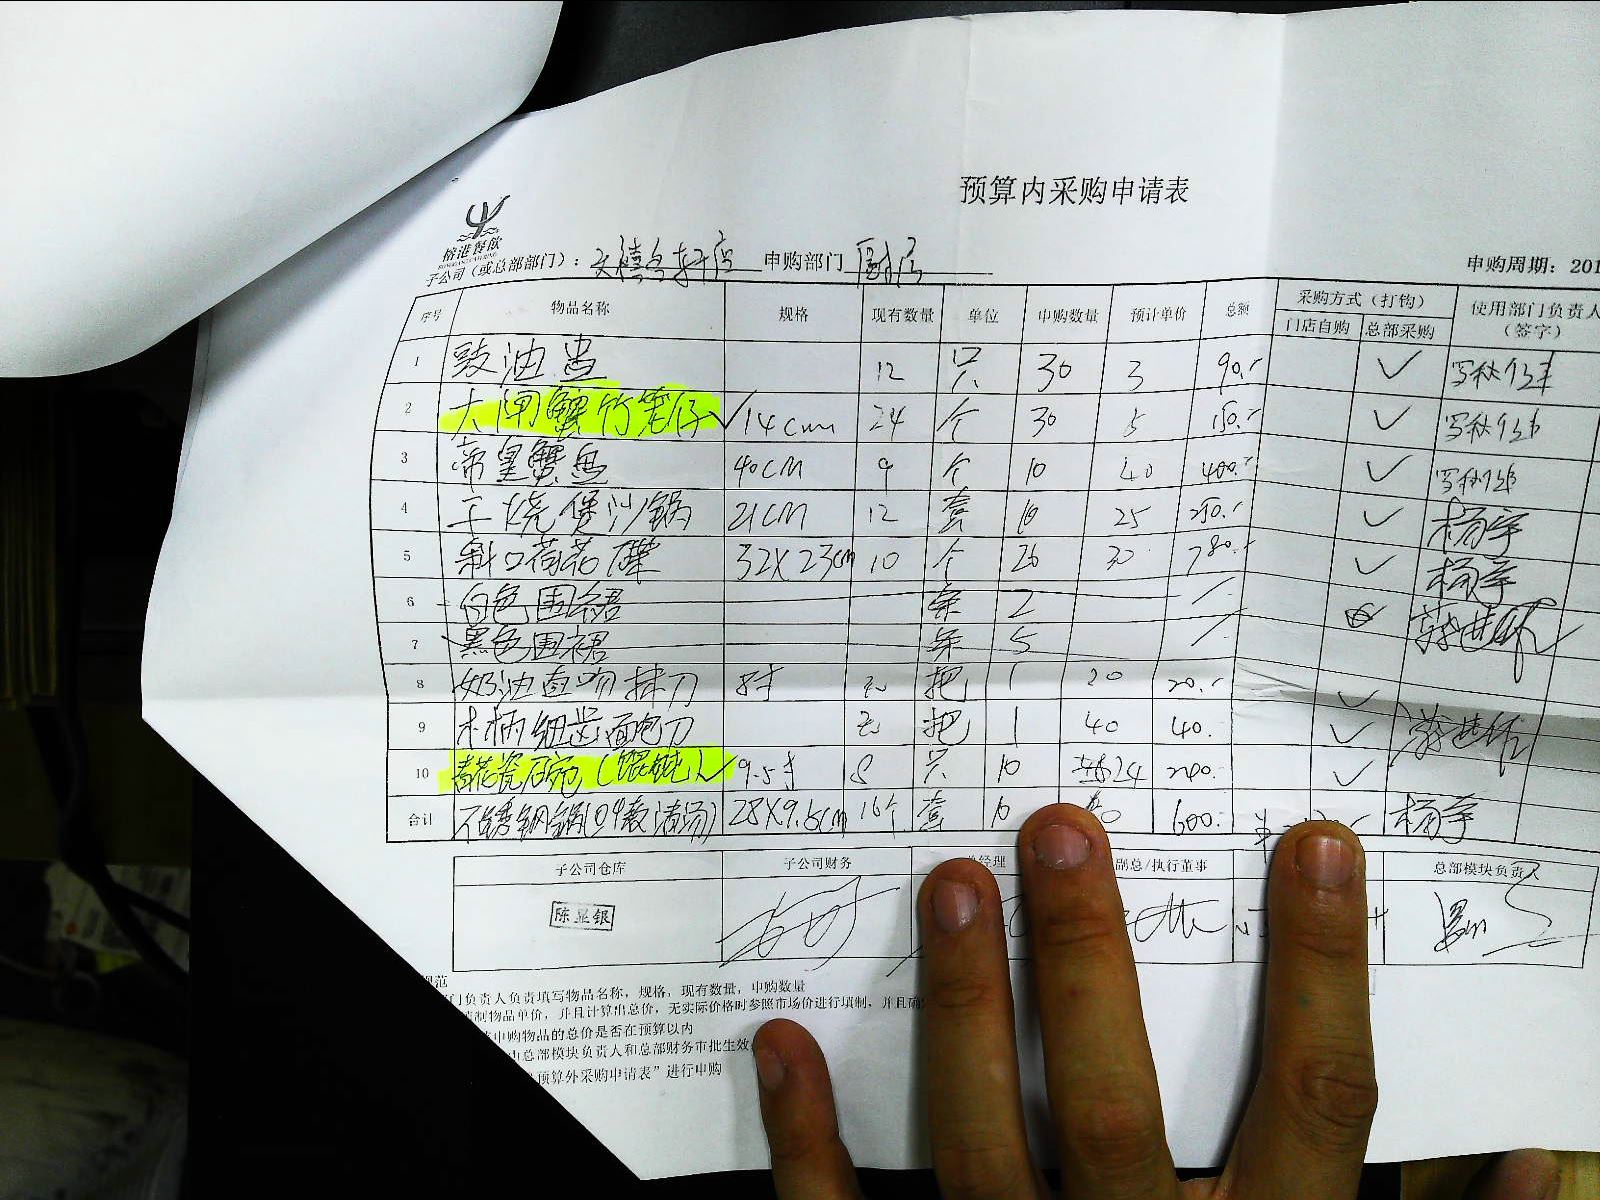 预算内采购申请表
榕港餐饮
子公司（或总部部门）： 申购部门 厨房 申购周期：201
序号 物品名称 规格 现有数量 单位 申购数量 预计单价 总额 采购方式（打钩） 使用部门负责人（签字）
门店自购 总部采购
1 豉油壶 12 只 30 3 90.-
2 大闸蟹竹笼仔 14cm 24 个 30 5 150.-
3 帝皇蟹盅 40CM 9 个 10 40 400.-
4 干烧煲沙锅 21CM 12 套 10 25 250.- 杨宇
5 斜口荷花碟 32X23cm 10 个 26 30 780.- 杨宇
6 白色围裙 条 2
7 黑色围裙 条 5
8 奶油直吻抹刀 8寸 无 把 1 20 20.-
9 木柄细齿面包刀 无 把 1 40 40.
10 青花瓷 9.5寸 8 只 10 24 240.-
合计 不锈钢锅 28X9.5cm 16个 套 10 600.- 杨宇
子公司仓库 子公司财务 总经理 副总/执行董事 总部模块负责人
陈显银
规范
部门负责人负责填写物品名称，规格，现有数量，申购数量
填制物品单价，并且计算出总价，无实际价格时参照市场价进行填制，并且
申购物品的总价是否在预算以内
由总部模块负责人和总部财务审批生效
预算外采购申请表”进行申购